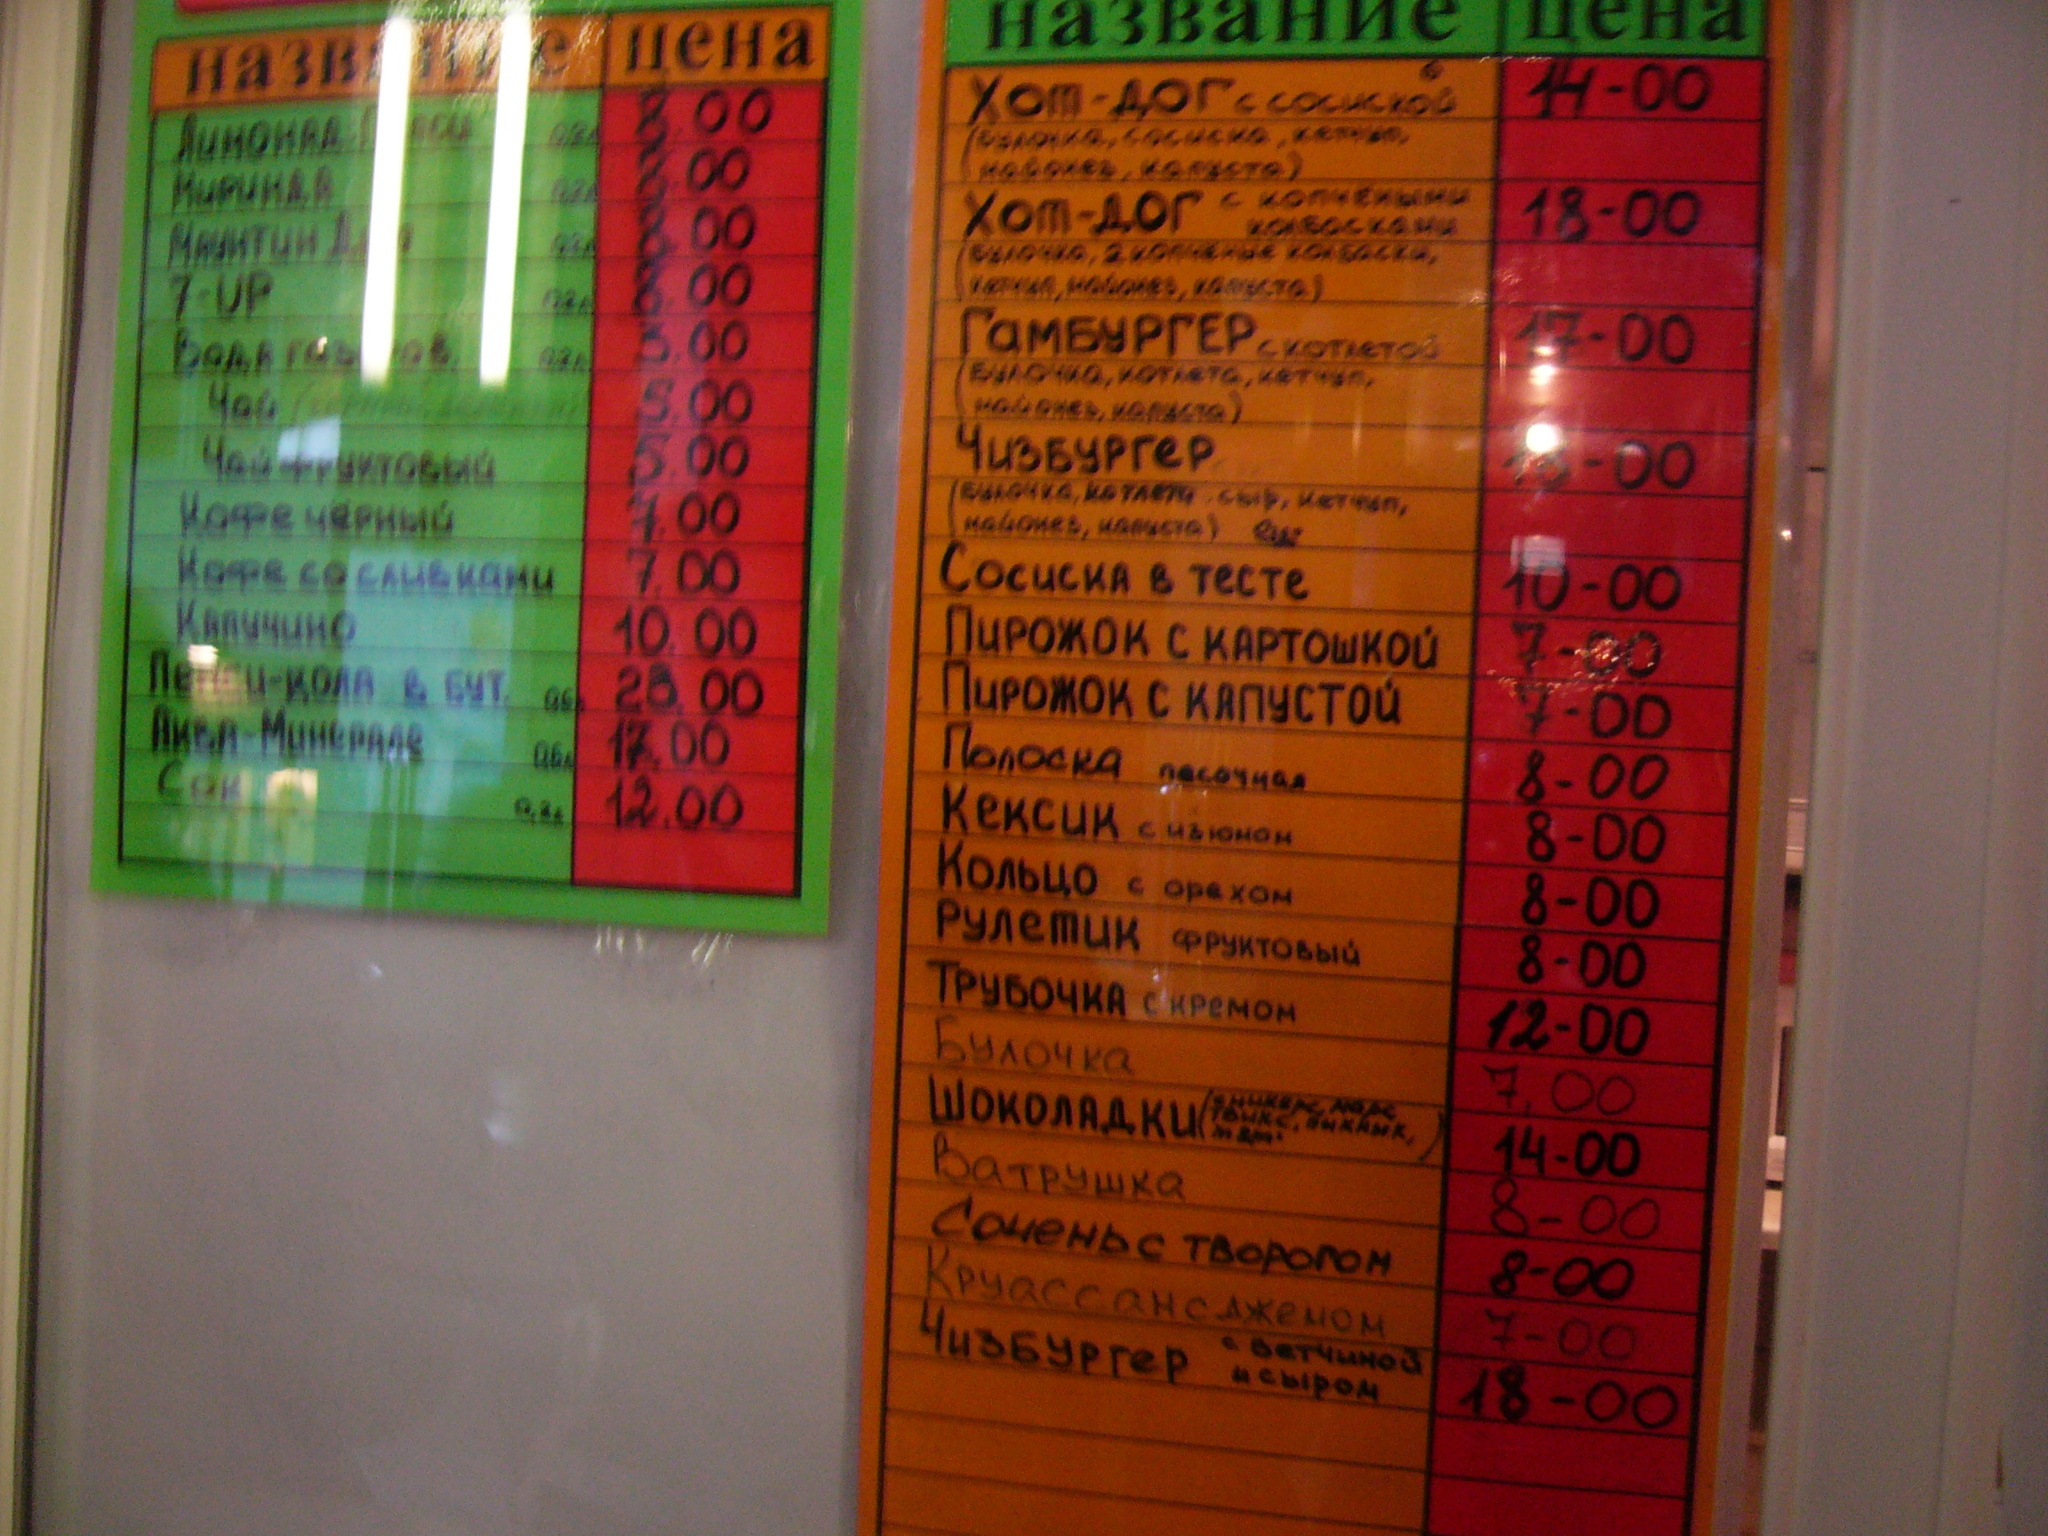 название цена
Лимонад 0.2л 8.00
Миринда 0.2л 8.00
Маунтин Дью 0.2л 8.00
7-UP 0.2л 8.00
Вода газ 0.2л 3.00
Чай 5.00
Чай фруктовый 5.00
Кофе чёрный 7.00
Кофе со сливками 7.00
Капучино 10.00
Пепси-кола в бут. 0.6л 28.00
Аква-Минерале 0.6л 17.00
Сок 0,2л 12.00
название цена
Хот-дог с сосиской 14-00
(булочка, сосиска, кетчуп,
майонез, капуста)
Хот-дог с копчёными колбасками 18-00
(булочка, 2 копчёные колбаски,
кетчуп, майонез, капуста)
Гамбургер с котлетой 17-00
(булочка, котлета, кетчуп,
майонез, капуста)
Чизбургер -00
(булочка, котлета, сыр, кетчуп,
майонез, капуста)
Сосиска в тесте 10-00
Пирожок с картошкой 7-00
Пирожок с капустой 7-00
Полоска песочная 8-00
Кексик с изюмом 8-00
Кольцо с орехом 8-00
Рулетик фруктовый 8-00
Трубочка с кремом 12-00
Булочка 7,00
Шоколадки (сникерс, марс, твикс, пикник, ) 14-00
Ватрушка 8-00
Сочень с творогом 8-00
Круассан с джемом 7-00
Чизбургер с ветчиной и сыром 18-00